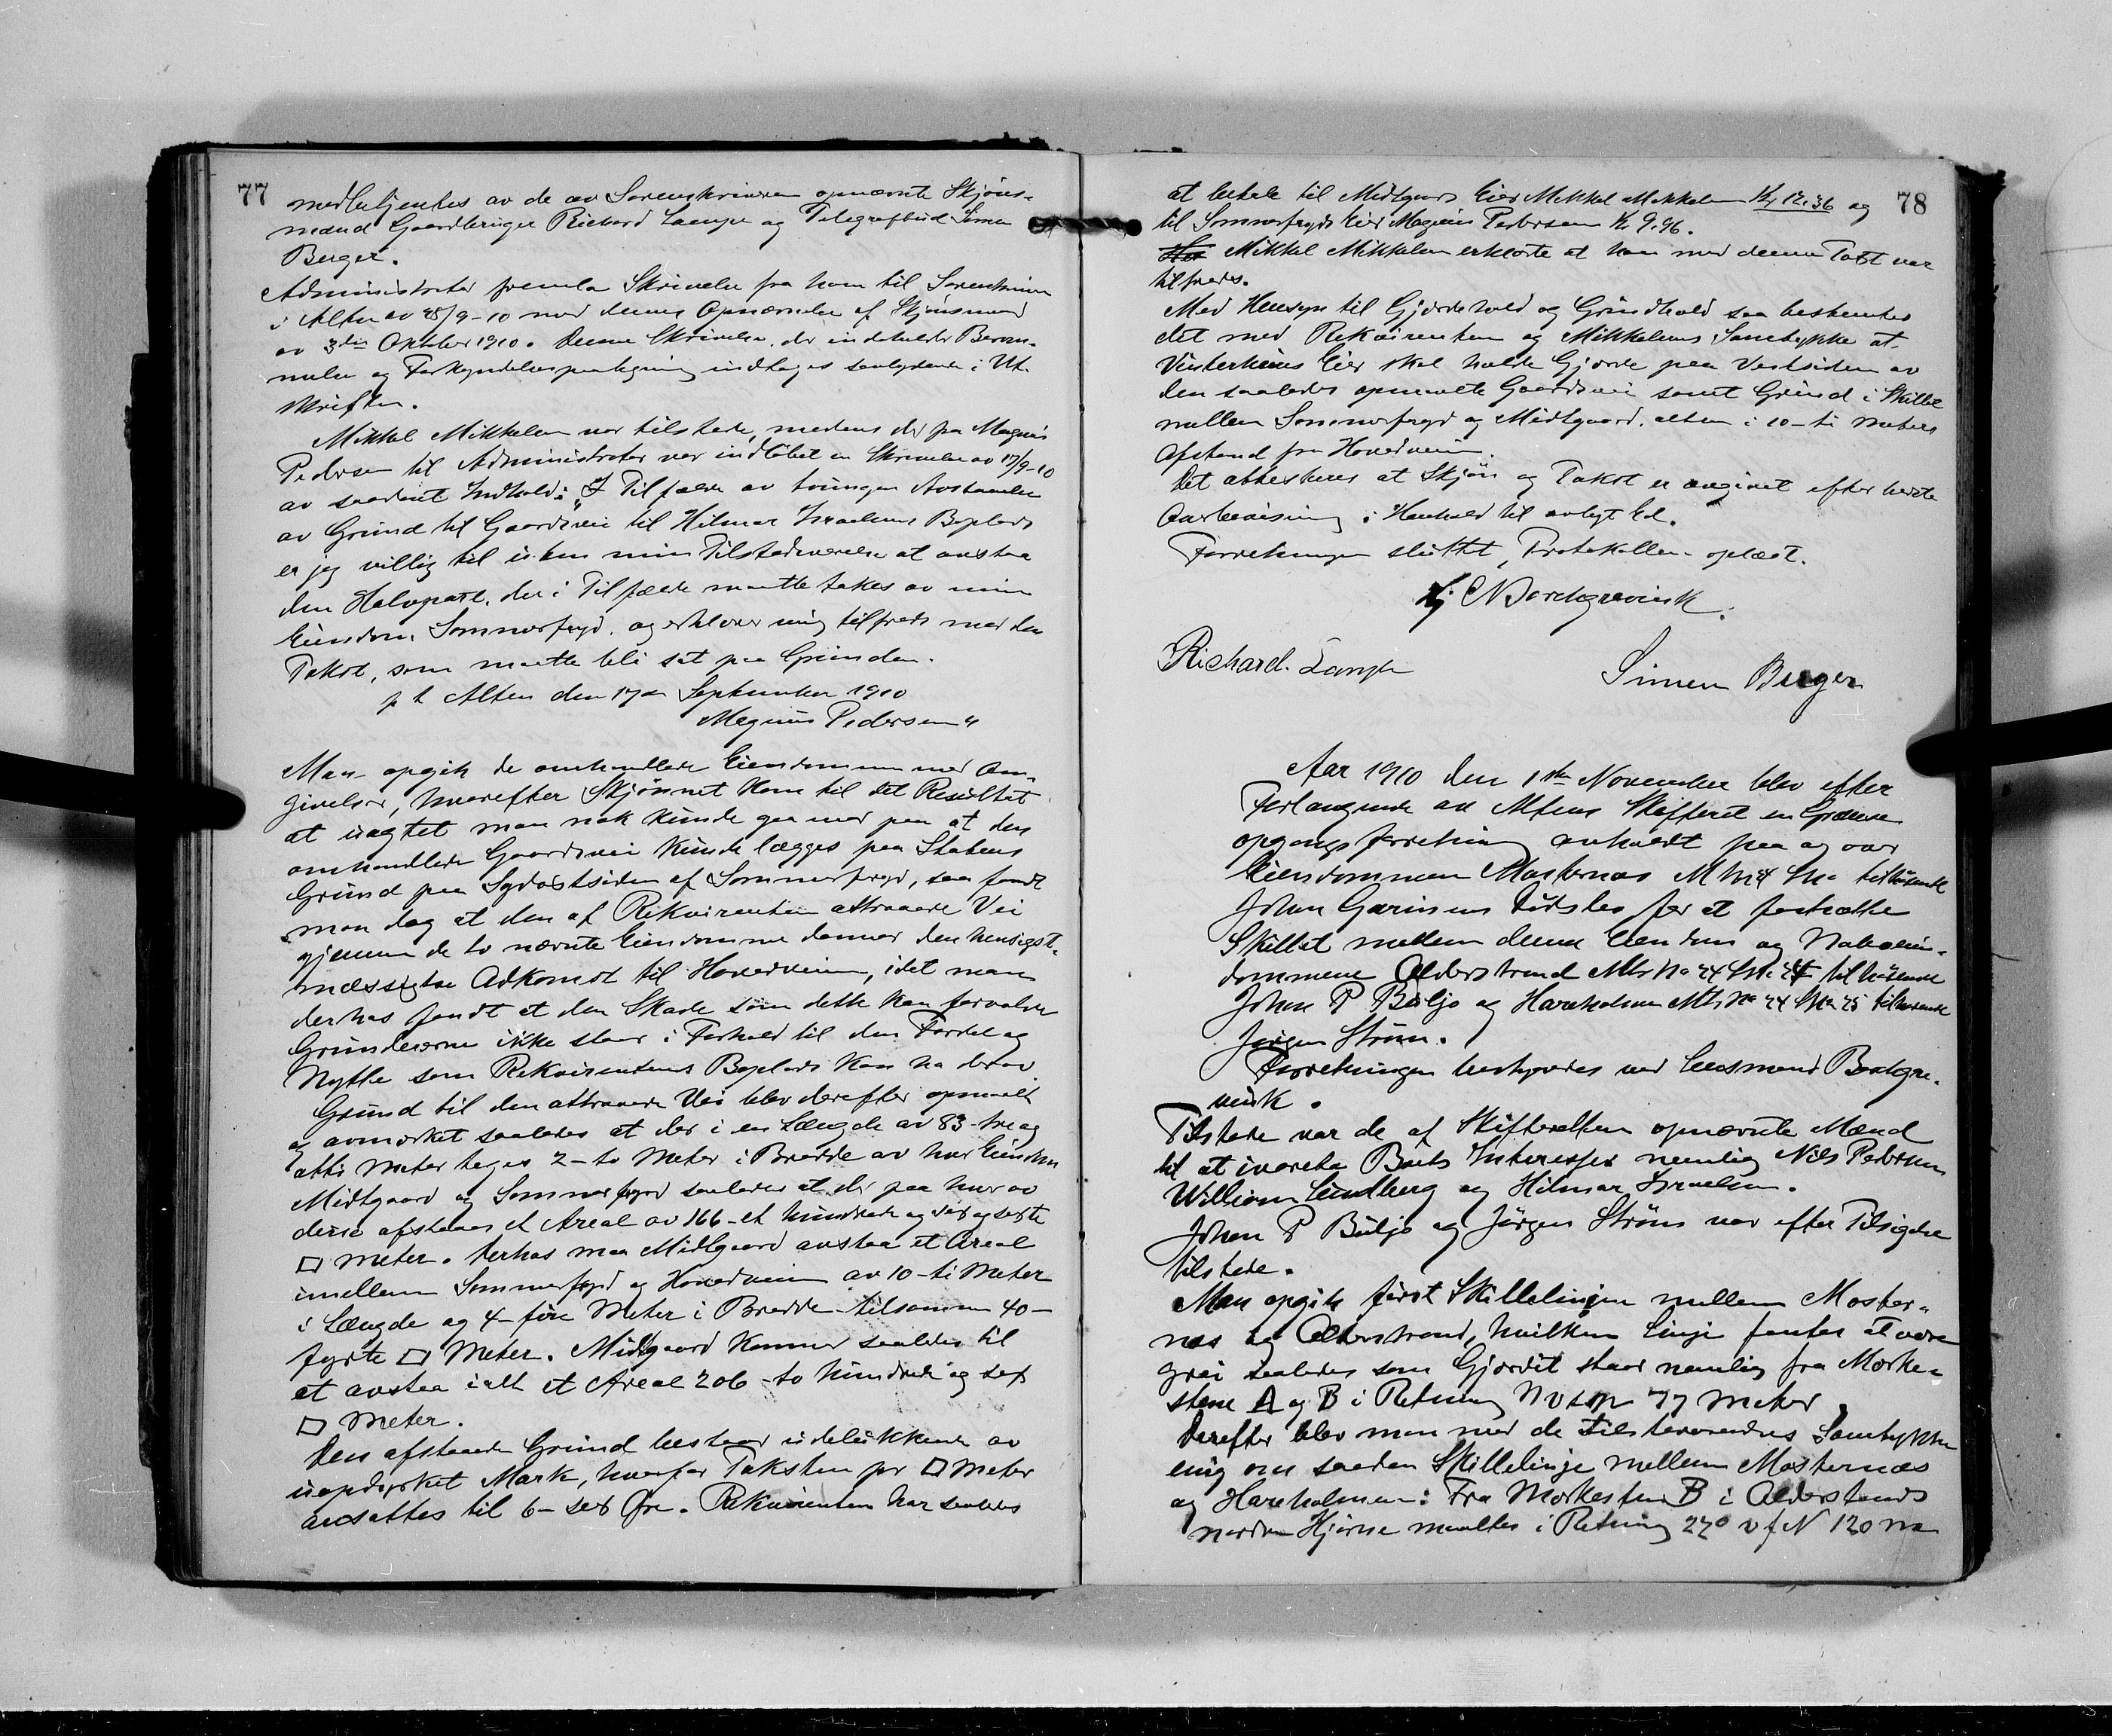 77
medbetjentes av de av Sorenskriveren opnævnte Skjøns-
mænd Gaardbruger Richard Lampe og Telegrafbud Simen
Berger.
Administrator fremla Skrivelse fra ham til Sorenskriveren
i Alten av 28/9-10 med dennes Opnævnelse af Skjønsmænd
av 3die Oktober 1910. Denne Skrivelse, der indeholder Beram-
melse og Forkyndelsespaategning indtages saalydende i Ut-
skriften.
Mikkel Mikkelsen var tilstede, medens der fra Magnus
Pedersen til Administrator var indløbet en Skrivelse av 17/9-10
av saadant Indhold: "I Tilfælde av tvungen Avstaaelse
av Grund til Gaardsvei til Hilmar Israelsens Boplads
er jeg villig til uten min Tilstedeværelse at avstaa
den Halvpart, der i Tilfælde maatte takes av min
Eiendom Sommerfryd, og erklærer mig tilfreds med den
Takst, som maatte bli sat paa Grunden.
p t Alten den 17de September 1910
Magnus Pedersen"
Man opgik de omhandlede Eiendomme med Om-
givelser, hvorefter Skjønnet kom til det Resultat
at uagtet man nok kunde gaa med paa at den
omhandlede Gaardsvei kunde lægges paa Statens
Grund paa Sydøstsiden af Sommerfryd, saa fandt
man dog at den af Rekvirenten attraaede Vei
gjennem de to nævnte Eiendomme danner den hensigts-
mæssigste Adkomst til Hovedveien, idet man
derhos fandt at den Skade som dette kan forvolde
Grundeierne ikke staar i Forhold til den Fordel og
Nytte som Rekvirentens Boplads kan ha derav
Grund til den attraaede Vei blev derefter opmaalt
og avmerket saaledes at der i en Længde av 83-tre og
otti Meter tages 2-to Meter i Bredde av hver Eiendom
Midtgaard og Sommerfryd saaledes at der paa hver av
disse afstaaes et Areal av 166-et hundrede og sex og sexti
□ Meter. Derhos maa Midtgaard avstaa et Areal
imellem Sommerfryd og Hovedveien av 10-ti Meter
i Længde og 4-fire Meter i Bredde tilsammen 40-
fyrti □ Meter. Midtgaard kommer saaledes til
at avstaa ialt et Areal 206-to hundrede og sex
□ Meter.
Den afstaaede Grund bestaar udelukkende av
uopdyrket Mark, hvorfor Taksten pr □ Meter
ansattes til 6-sex Øre. Rekvirenten har saaledes
78
at betale til Midtgaards Eier Mikkel Mikkelsen Kr 12.36 og
til Sommerfryds Eier Magnus Pedersen Kr 9.96.
Mikkel Mikkelsen erklærte at han med denne Takst var
tilfreds.
Med Hensyn til Gjerdehold og Grindhold saa bestemtes
det med Rekvirenten og Mikkelsens Samtykke at
Eier skal holde Gjerde paa Vestsiden av
den saaledes opmaalte Gaardsvei samt Grind i Skillet
mellem Sommerfryd og Midtgaard, alten i 10-ti Meters
Afstand fra Hovedveien.
Det attesteres at Skjøn og Takst er avgivet efter bedste
Overbevisning i Henhold til avlagt Ed.
Forretningen sluttet, Protokollen oplæst.
Hj. C Borchgrevink.
Richard Lampe
Simen Berger
Aar 1910 den 1ste November blev efter
Forlangende av Altens Skifteret en Grænse
opgangsforretning avholdt paa og over
Eiendommen Masternes M № 24 tilhørende
Johan Dødsbo for at fastsætte
Skillet mellem denne Eiendom og Naboeien-
dommene Olderstrand Mtr № 24 tilhørende
Johan P Buljo og Hareholmen Mtr № 24 L№ 25 tilhørende
Jørgen Strøm.
Forretningen bestyredes ved Lensmand Borchgre-
vink.
Tilstede var de af Skifteretten opnævnte Mænd
til at ivareta Boets Interesser nemlig Nils Pedersen
William Lundberg og Hilmar Israelsen.
Johan P Buljo og Jørgen Strøm var efter Tilsigelse
tilstede.
Man opgik først Skillelinjen mellem Master-
nes og Olderstrand, hvilken Linje fantes at være
grei saaledes som Gjerdet staar nemlig fra Merke-
stene A og B i Retning 77 Meter
Derefter blev man med de Tilstedeværendes Samtykke
enig om saadan Skillelinje mellem Masternæs
og Hareholmen: Fra Merkesten B i Olderstrands
nordre Hjørne maaltes i Retning 27° V f N 120 m